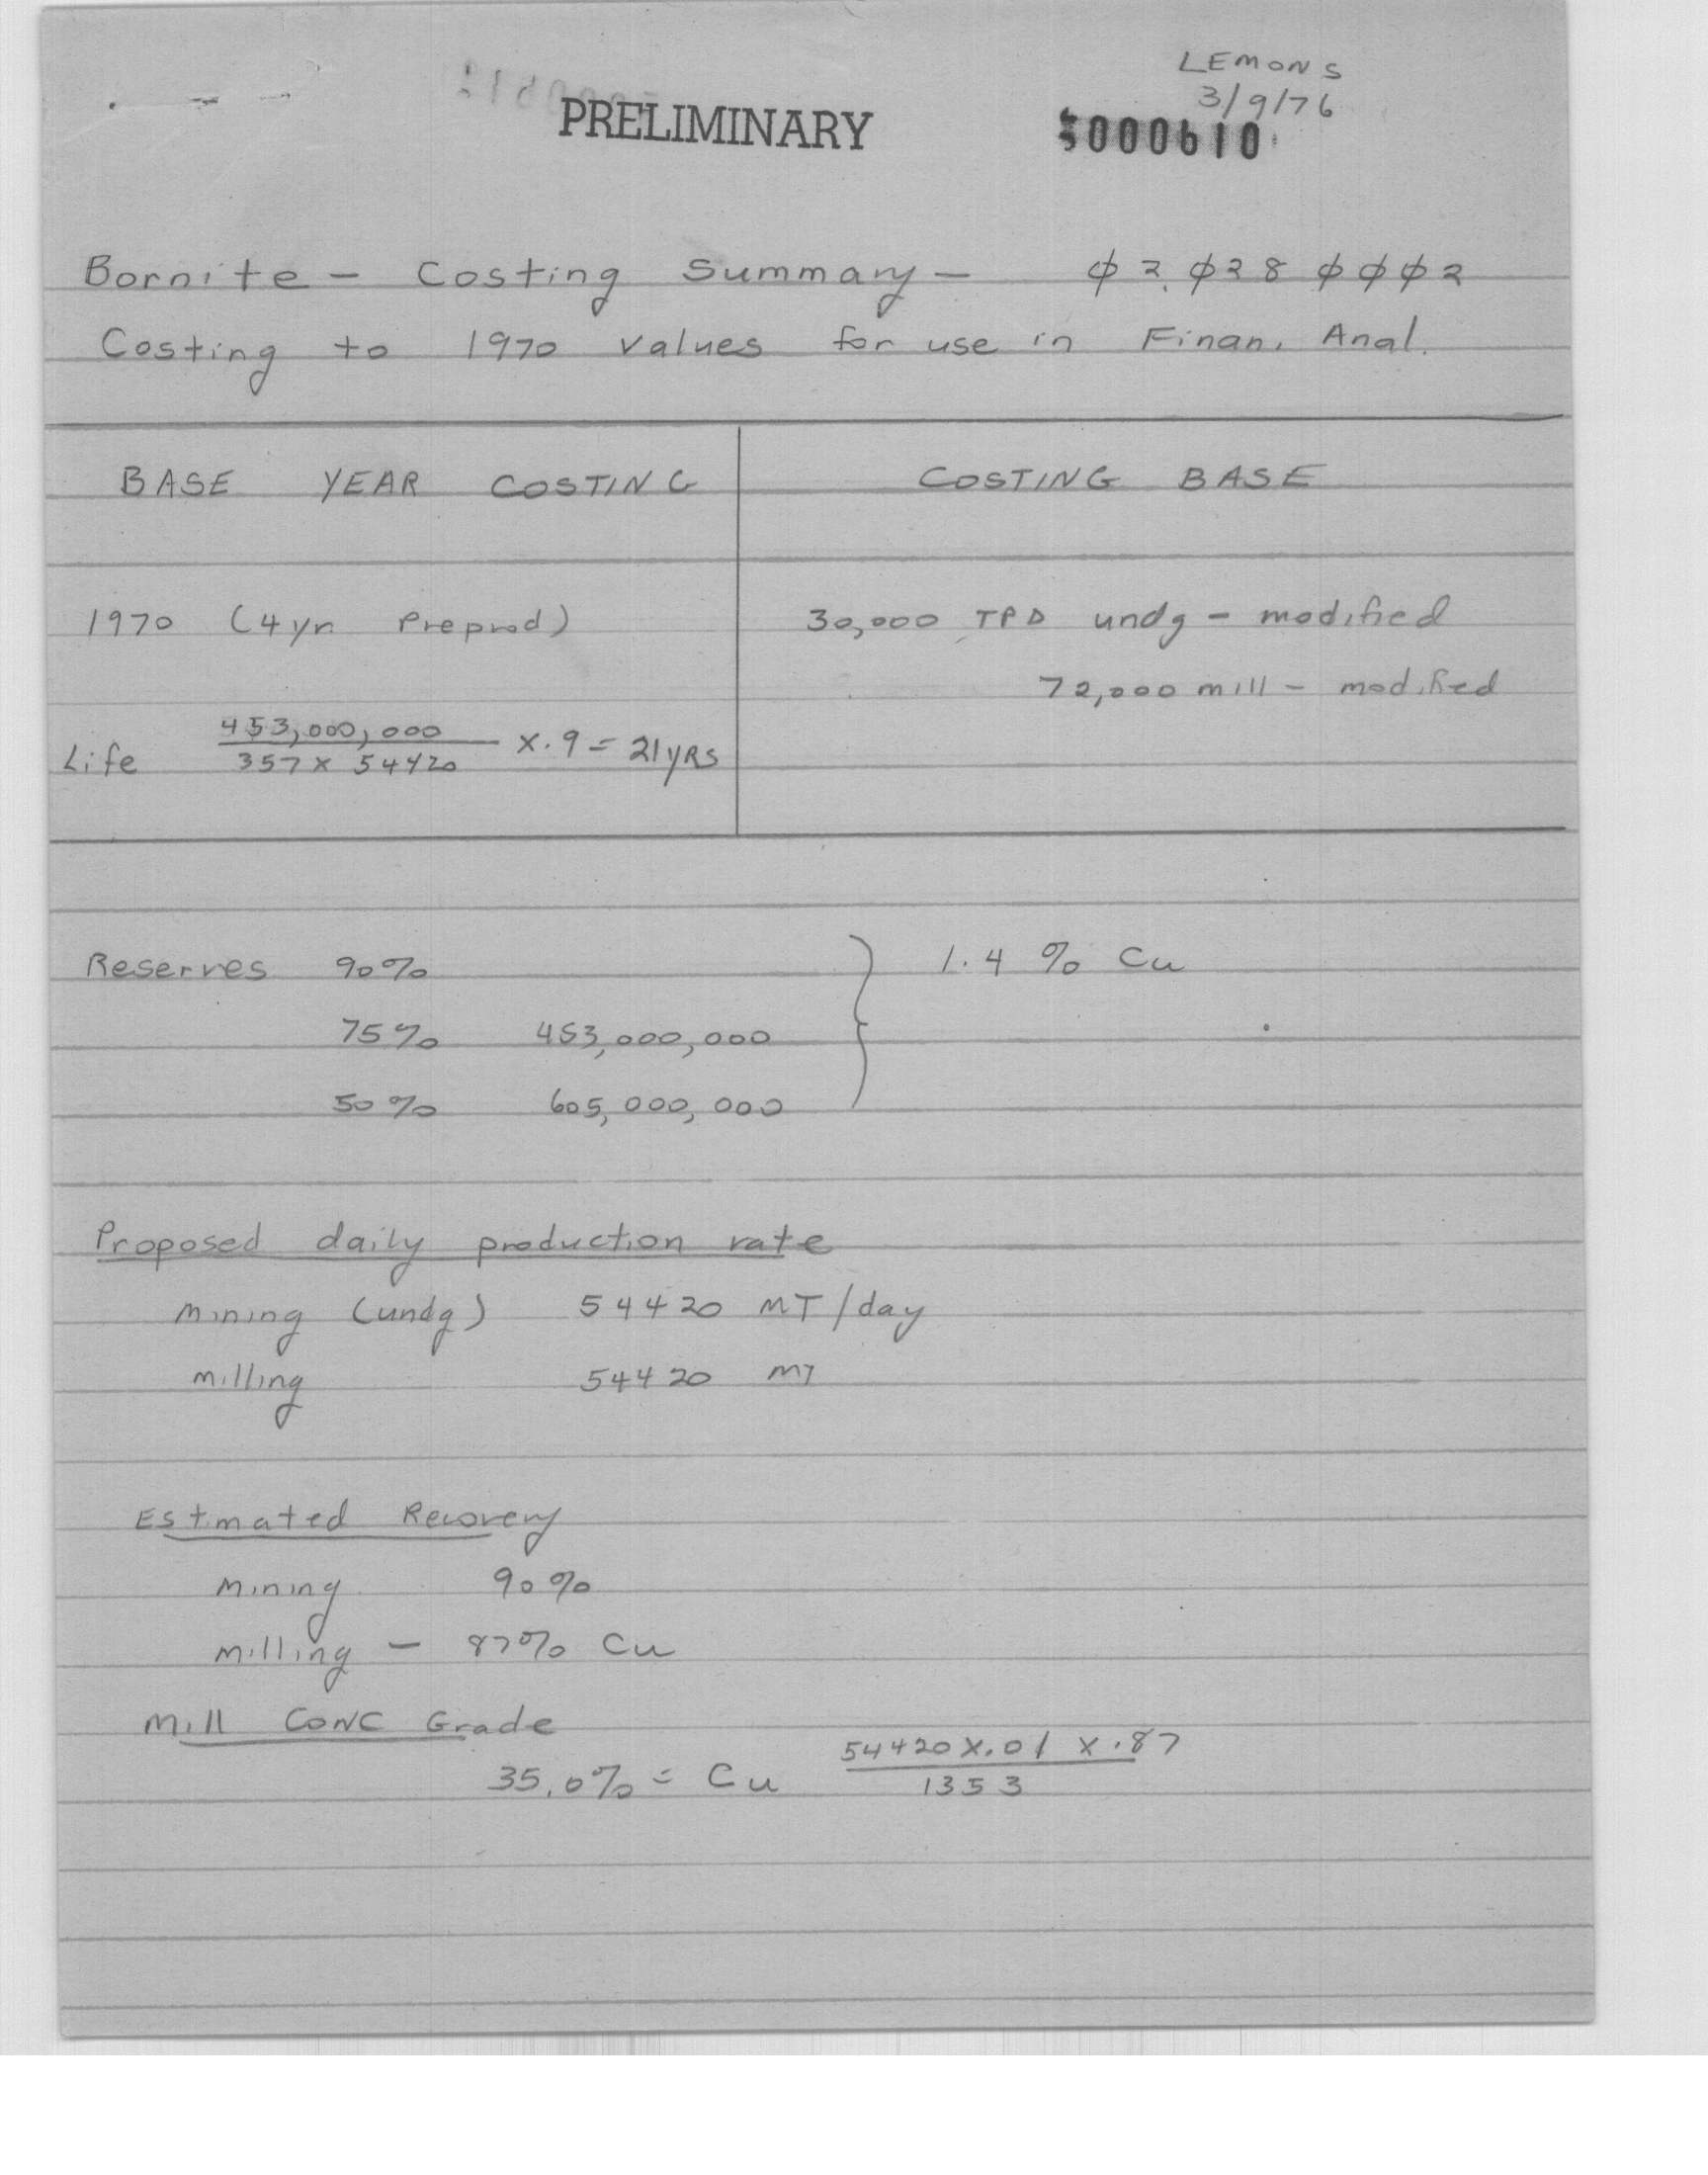 LEMONS
3/9/76
PRELIMINARY
5000610
Bornite - Costing Summary - φ2.φ28φφφ2
Costing to 1970 values for use in Finan. Anal.
BASE YEAR COSTING
COSTING BASE
1970 (4yr Preprod)
30,000 TPD undg - modified
72,000 mill - modified
Life 453,000,000 / 357 x 54420 x .9 = 21 yRS
Reserves 90% 1.4 % Cu
75% 453,000,000
50% 605,000,000
Proposed daily production rate
Mining (undg) 54420 MT/day
Milling 54420 MT
Estimated Recovery
Mining 90%
Milling - 87% Cu
Mill CONC Grade
35.0% = Cu 54420 x .01 x .87 / 1353